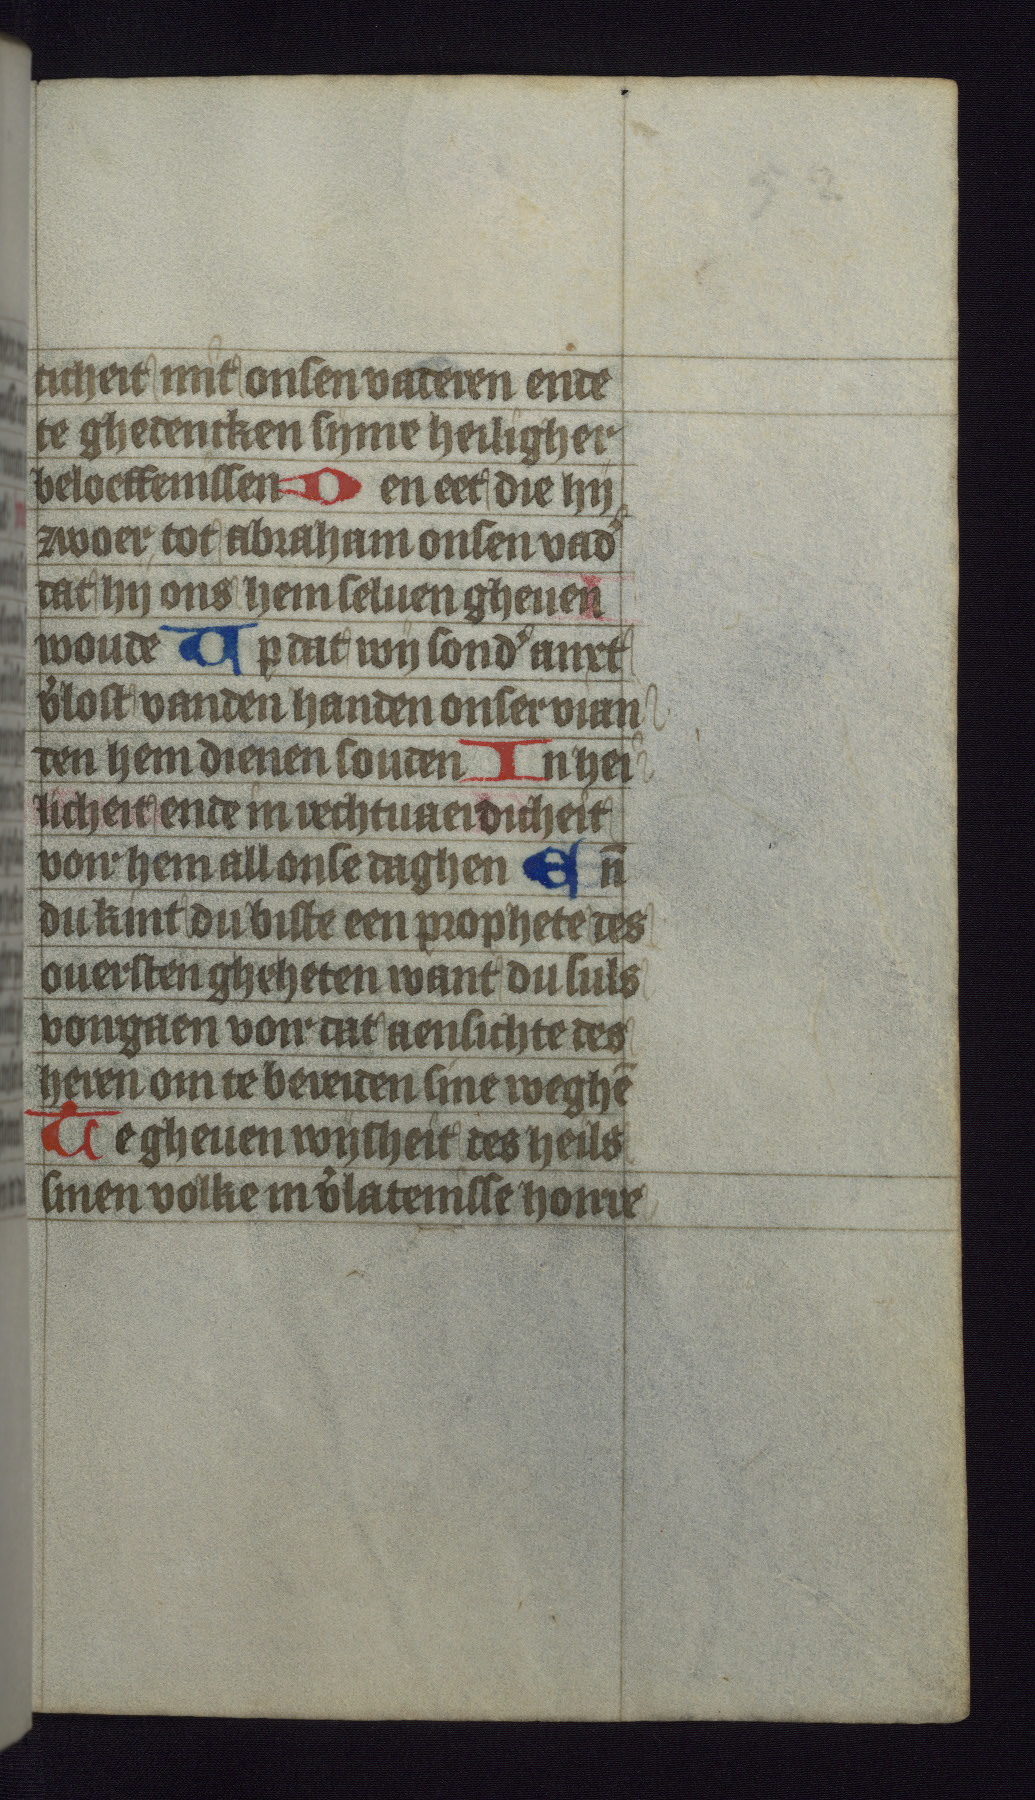 52
ticheit mit onsen vaderen ende
te ghedencken sijnre heiligher
beloeffenissen Den eet die hij
zwoer tot abraham onsen vad᾽
dat hij ons hem seluen gheuen
woude Up dat wij sond᾽ anxt
v᾽lost vanden handen onser vian
den hem dienen souden In hei
licheit ende in rechtuaerdicheit
voir hem all onse daghen En̄
du kint du biste een prophete des
ouersten gheheten want du suls
voirgaen voir dat aensichte des
heren om te bereiden sine weghē
Te gheuen wijsheit des heils
sinen volke in v᾽latenisse honre